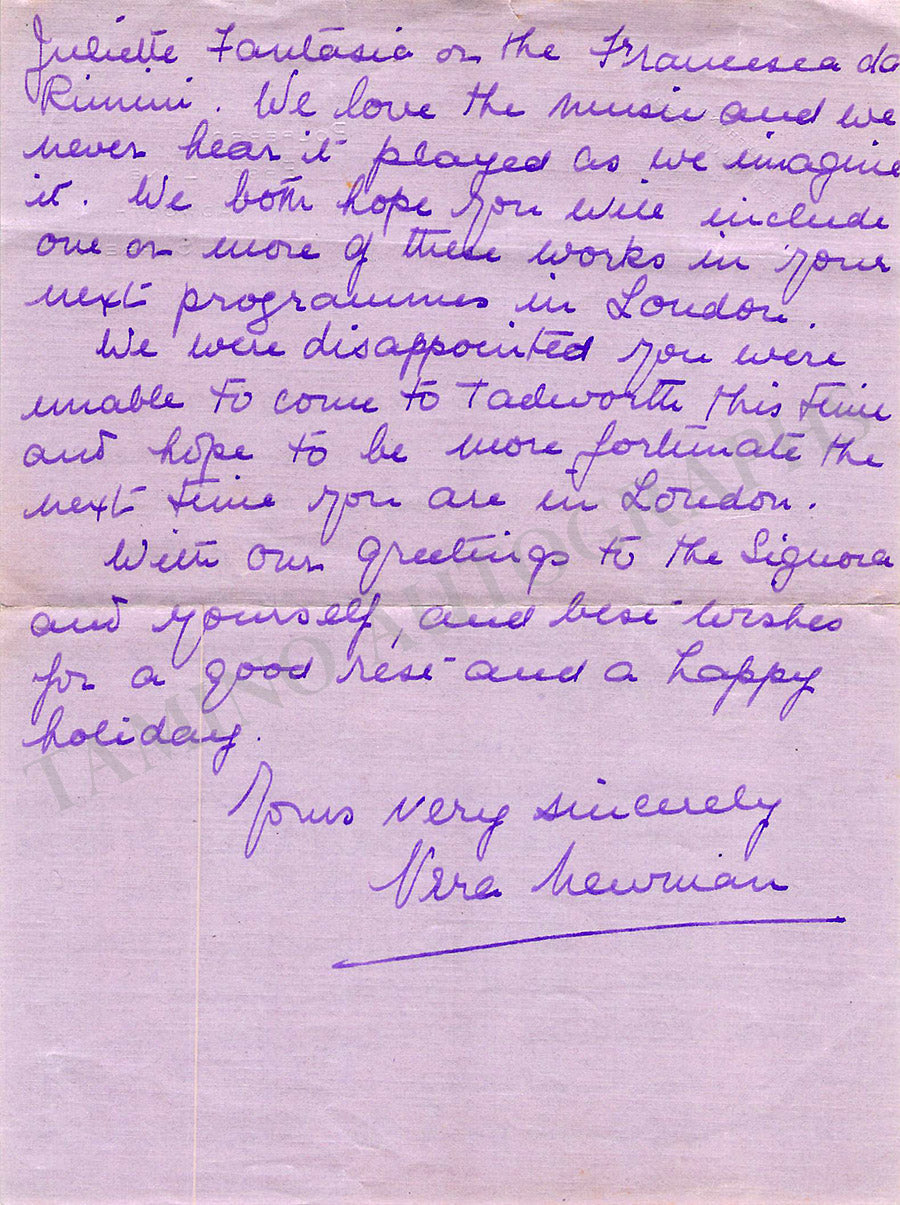 Juliette Fantasia or the Francesca da
Rimini. We love the music and we
never hear it played as we imagine
it. We both hope you will include
one or more of these works in your
next programmes in London.
We were disappointed you were
unable to come to Tadworth this time
and hope to be more fortunate the
next time you are in London.
With our greetings to the Signora
and yourself, and best wishes
for a good rest and a happy
holiday.
Yours very sincerely
Vera Newman
TAMINO AUTOGRAPHS